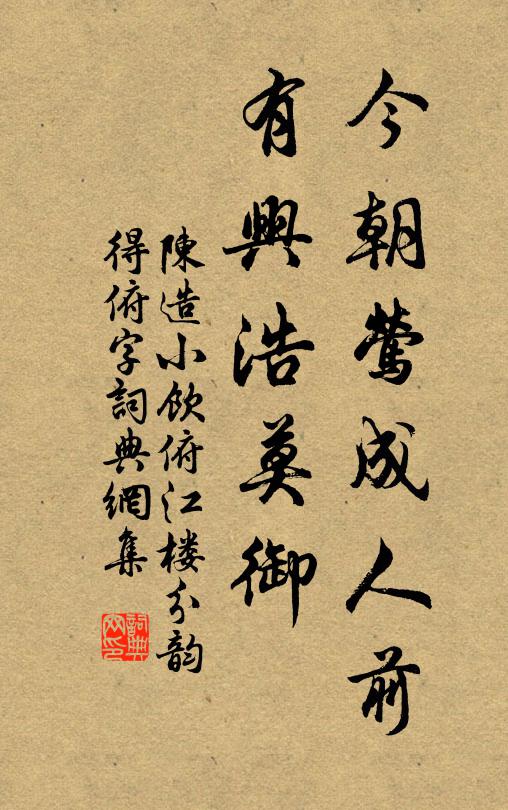 今朝鶯成人前
有興浩莫御
陳造小飲俯江楼分韵
得俯字詞典網集
詞典网印